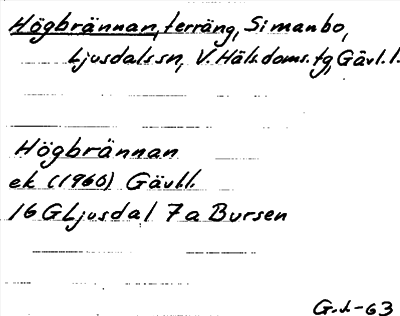 Högbrännan, terräng, Simanbo,
Ljusdals sn, V. Häls. doms. tg, Gävl. l.
Högbrännan
ek (1960) Gävl.l.
16 G Ljusdal 7a Bursen
G.L-63